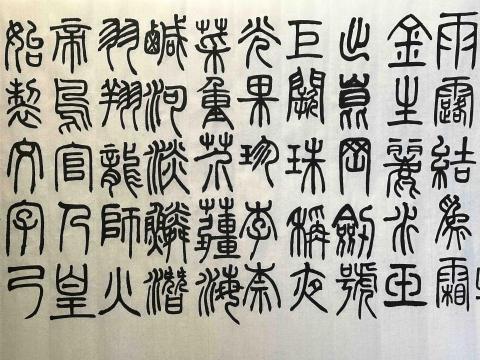 雨露結為霜
金生麗水玉
出崑岡劍號
巨闕珠稱夜
光果珍李柰
菜重芥薑海
鹹河淡鱗潛
羽翔龍師火
帝鳥官人皇
始製文字乃